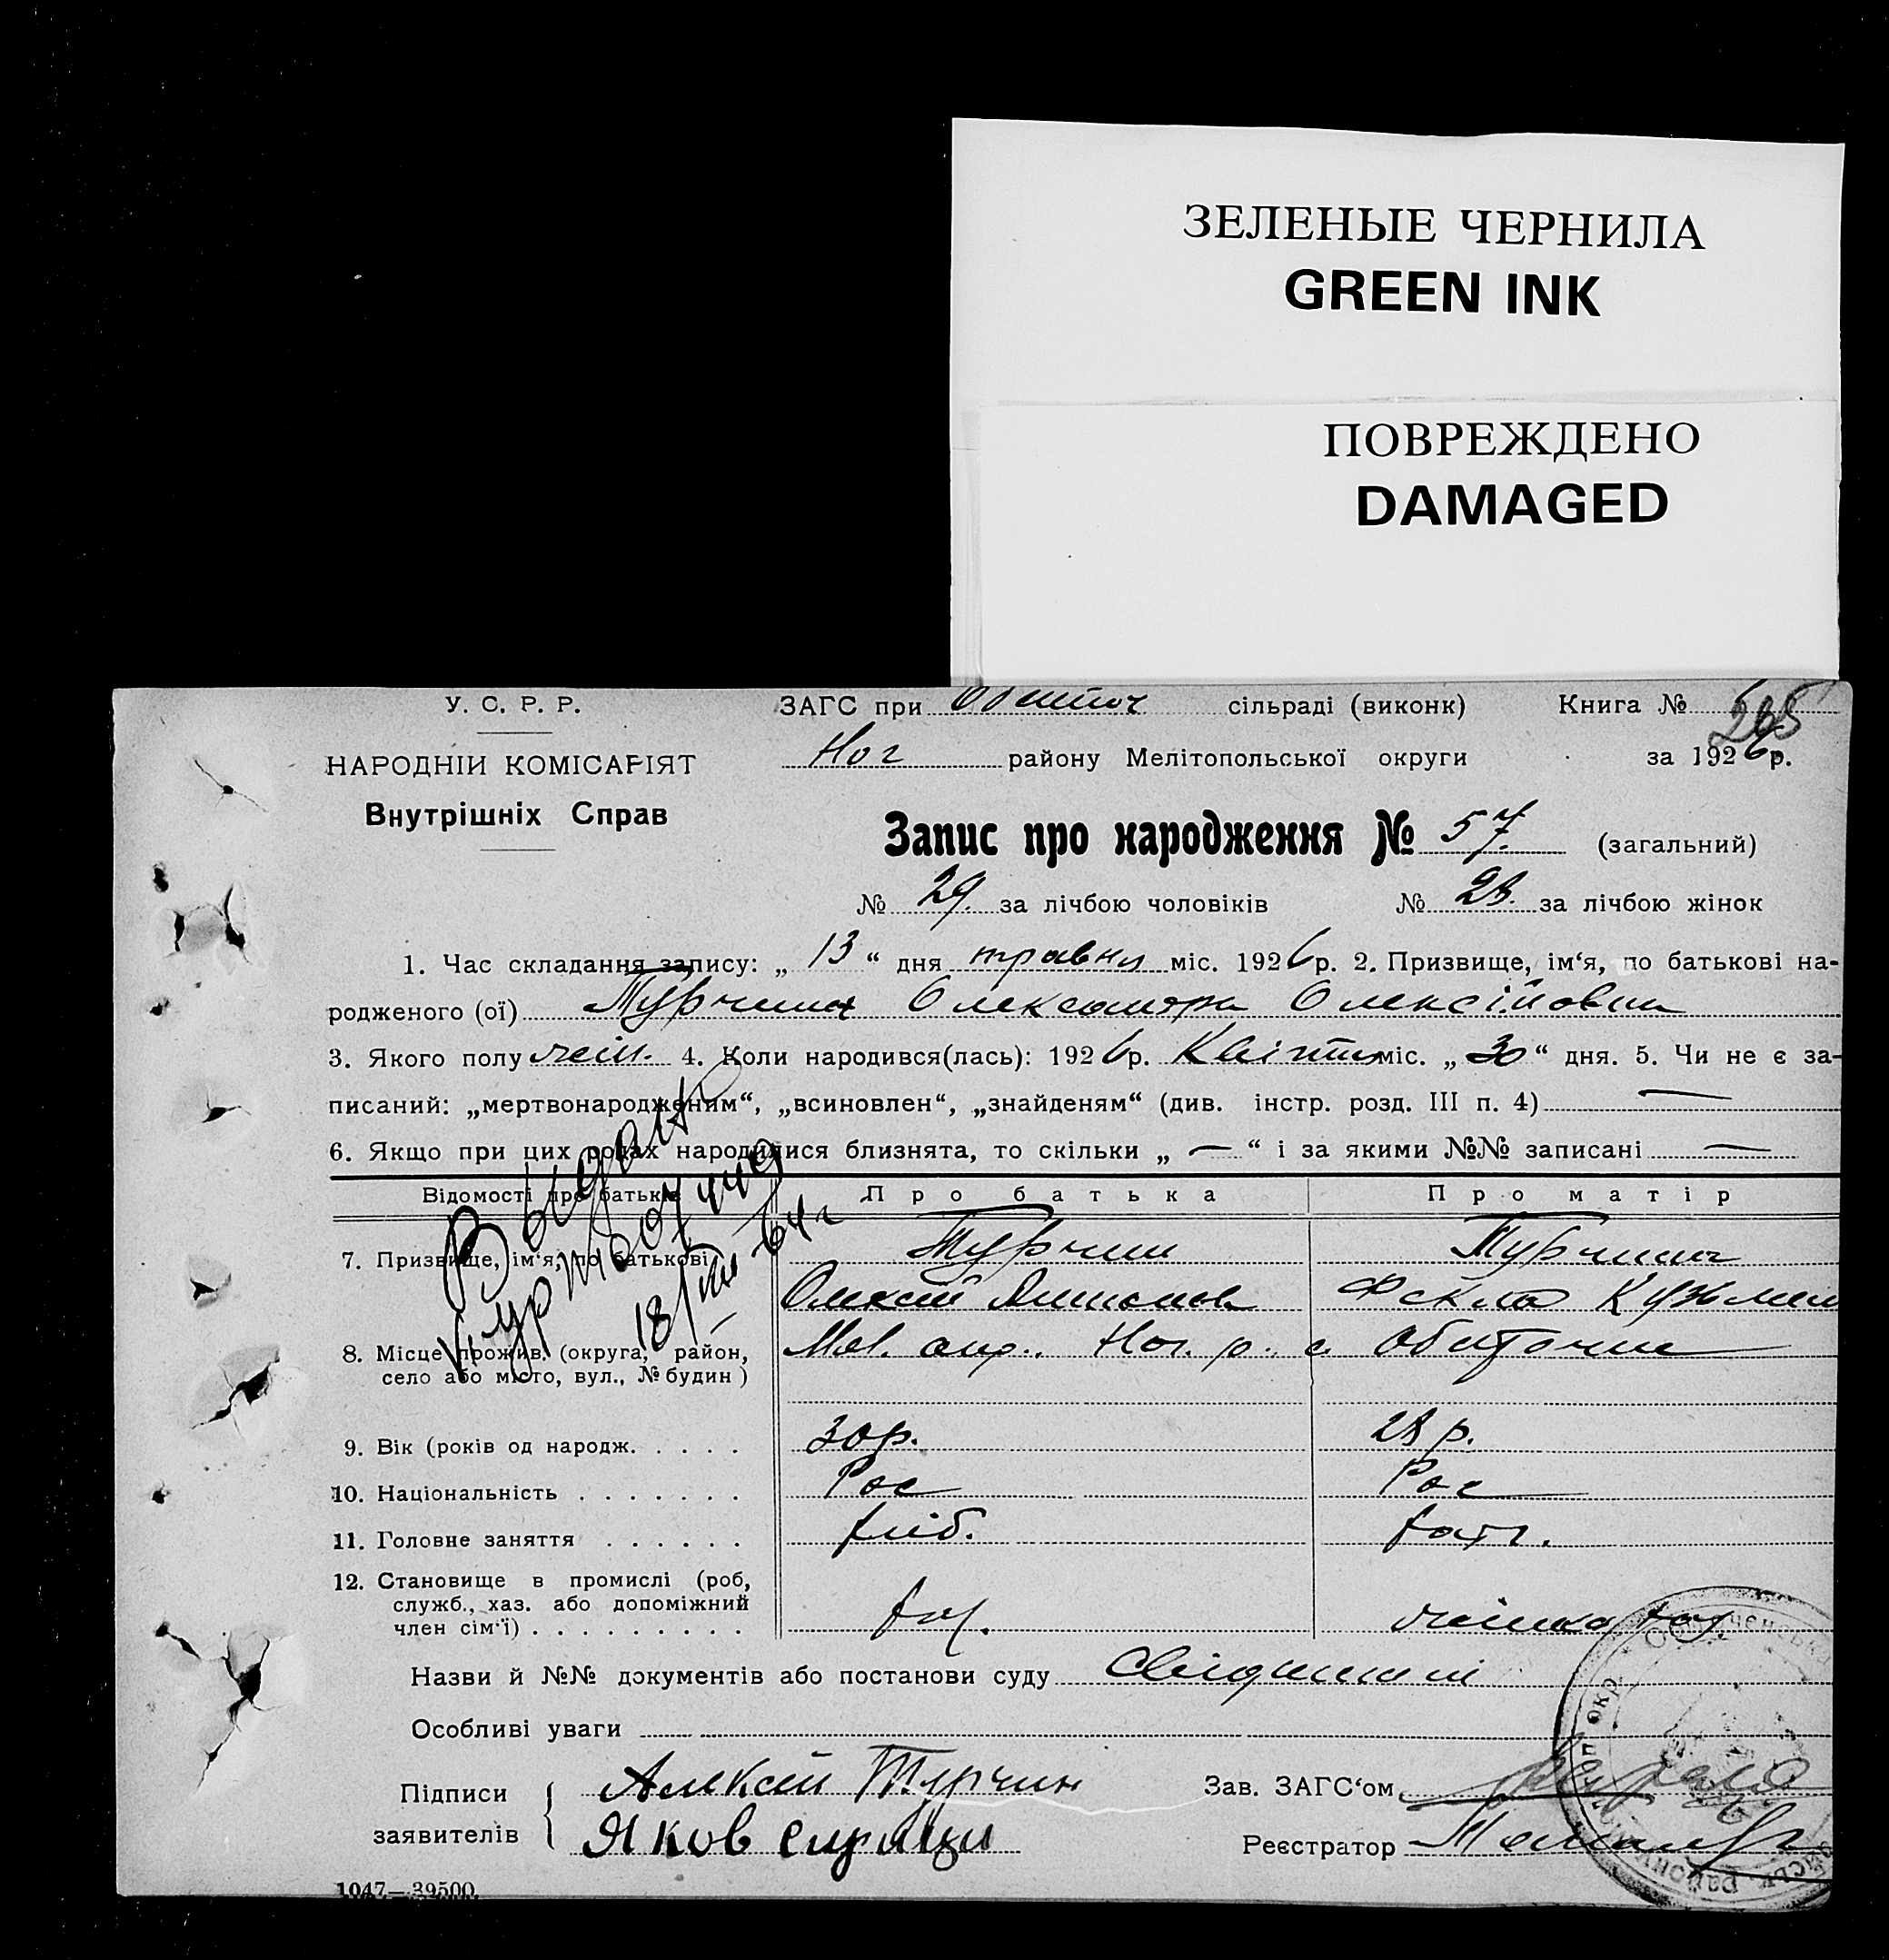 ЗЕЛЕНЫЕ ЧЕРНИЛА
GREEN INK
ПОВРЕЖДЕНО
DAMAGED
У. С. Р. Р.
ЗАГС при Обиточ сільраді (виконк) Книга № 265
НАРОДНІЙ КОМІСАРІЯТ
Ног району Мелітопольської округи за 1926р.
Внутрішніх Справ
Запис про народження № 57. (загальний)
№ 29. за лічбою чоловіків № 28. за лічбою жінок
1. Час складання запису: „ 13 “ дня травня міс. 1926р. 2. Призвище, ім‘я, по батькові на-
родженого (ої) Турчина Олександра Олексійовна
3. Якого полу жін. 4. Коли народився(лась): 1926р. Квітня міс. „ 30 “ дня. 5. Чи не є за-
писаний: „мертвонародженим“, „всиновлен“, „знайденям“ (див. інстр. розд. III п. 4) —
6. Якщо при цих родах народилися близнята, то скільки „ — “ і за якими №№ записані —
Відомості про батьків Про батька Про матір
7. Призвище, ім‘я, по батькові Турчин Турчина
Олексій Фекла Кузмин
8. Місце прожив. (округа, район, Мел. окр. Ног. р. с. Обиточне
село або місто, вул., № будин)
9. Вік (років од народж. . . . . 30р. 28 р.
10. Національність . . . . . . . Рос Рос
11. Головне заняття . . . . . . хліб. хатн.
12. Становище в промислі (роб,
служб., хаз. або допоміжний
член сім‘ї) . . . . . . . . . хаз. жінка хаз.
Выдано
18/VIII 64 г
Назви й №№ документів або постанови суду Свідчини
Особливі уваги
Підписи Алексей Турчин Зав. ЗАГС‘ом
заявителів Яков Реєстратор
1047—39500.